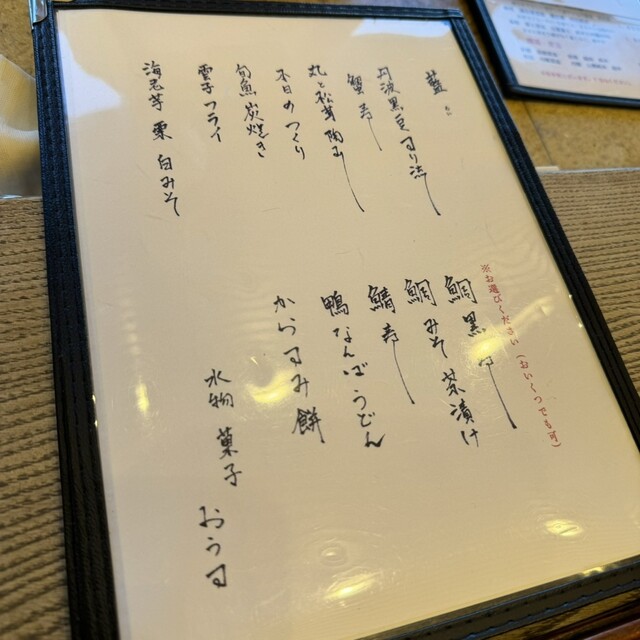 藍
丹波黒豆 すり流し
蟹寿し
丸と松茸 陶
本日のつくり
旬魚 炭焼き
雲子フライ
海老芋 栗 白みそ
※お選びください（おいくつでも可）
鯛黒
鯛みそ茶漬け
鯖寿し
鴨なんばうどん
からすみ餅
水物 菓子 おうす